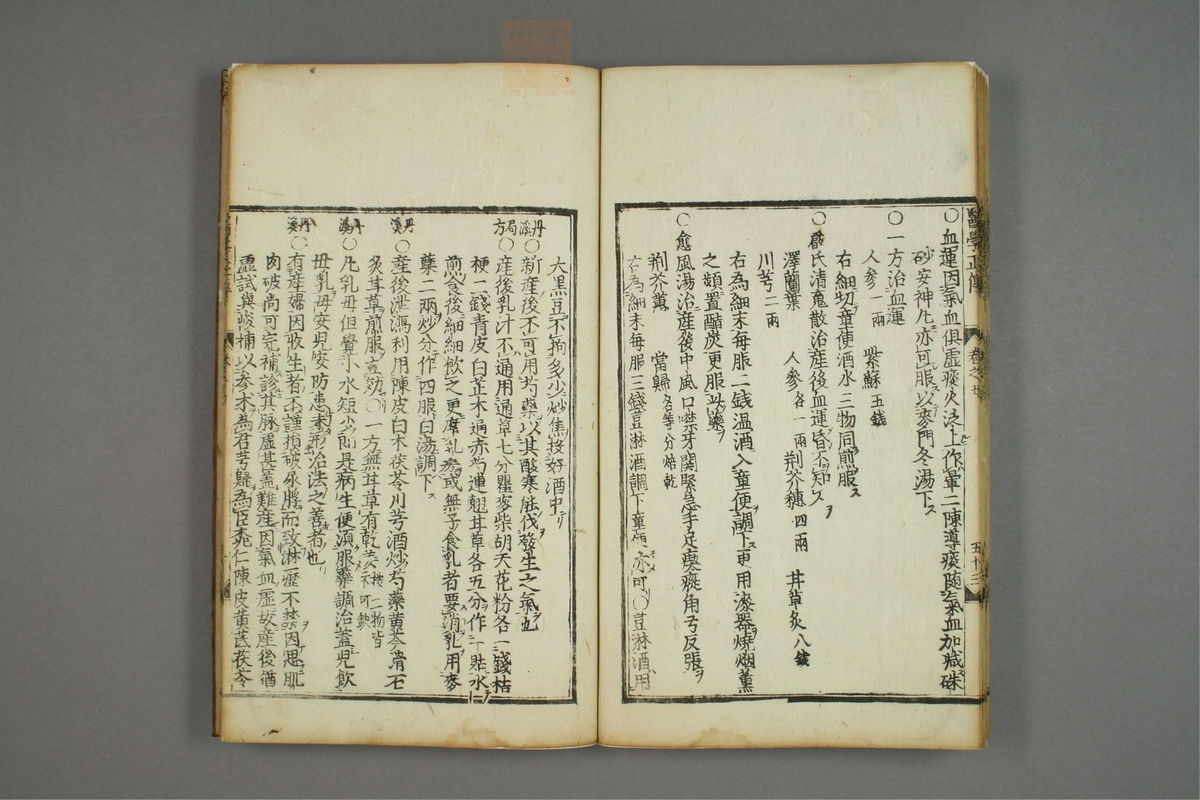 醫學正傳 卷之七 五十三
〇血運因氣血俱虛痰火泛上作暈二陳導痰隨氣血加減硃
砂安神凡亦可服以麥門冬湯下
〇一方治血運
人參一兩 紫蘇五錢
右細切童便酒水三物同煎服
〇嚴氏清魂散治產後血運昏不知人
澤蘭葉 人參各一兩 荆芥穗四兩 甘草炙八錢
川芎二兩
右為細末每服二錢溫酒入童便調下更用漆器燒烟熏
之頻置醋炭更服此藥
〇愈風湯治產後中風口噤牙関緊急手足瘈瘲角弓反張
荆芥穗 當歸各等分焙乾
右為細末每服三錢豆淋酒調下童便亦可〇豆淋酒用
大黑豆不拘多少炒焦投好酒中
丹溪〇新產後不可用芍藥以其酸寒能伐發生之氣也
局方〇產後乳汁不通用通草七分瞿麥柴胡天花粉各一錢枯
梗二錢青皮白芷木通赤芍連翹甘草各五分作一貼水
煎食後細細飲之更摩乳房或無子食乳者要消乳用麥
蘗二兩炒分作四服白湯調下
丹溪〇產後泄瀉利用陳皮白术茯苓川芎酒炒芍藥黃芩滑石
炙甘草煎服立効〇一方無甘草有乾姜按二物皆不可缺
丹溪〇凡乳母但覺小水短少即是病生便須服藥調治蓋兒飲
母乳母安兒安防患未形治法之善者也
丹溪〇有產婦因收生者不謹損破尿脬而致淋瀝不禁因思肌
肉破尚可完補診其脉虛甚蓋難產因氣血虛故產後尤
虛試與峻補以參术為君芎歸為臣桃仁陳皮黃芪茯苓